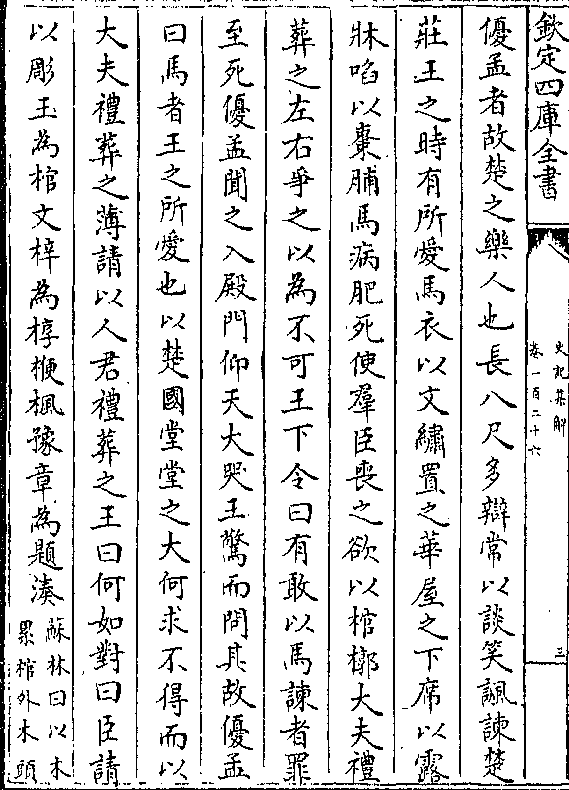 欽定四庫全書
史記集解
卷一百二十六
三
優孟者故楚之樂人也長八尺多辯常以談笑諷諫楚
莊王之時有所愛馬衣以文繡置之華屋之下席以露
牀啗以棗脯馬病肥死使羣臣喪之欲以棺槨大夫禮
葬之左右爭之以為不可王下令曰有敢以馬諫者罪
至死優孟聞之入殿門仰天大哭王驚而問其故優孟
曰馬者王之所愛也以楚國堂堂之大何求不得而以
大夫禮葬之薄請以人君禮葬之王曰何如對曰臣請
以彫玉為棺文梓為椁楩楓豫章為題湊
蘇林曰以木
累棺外木頭